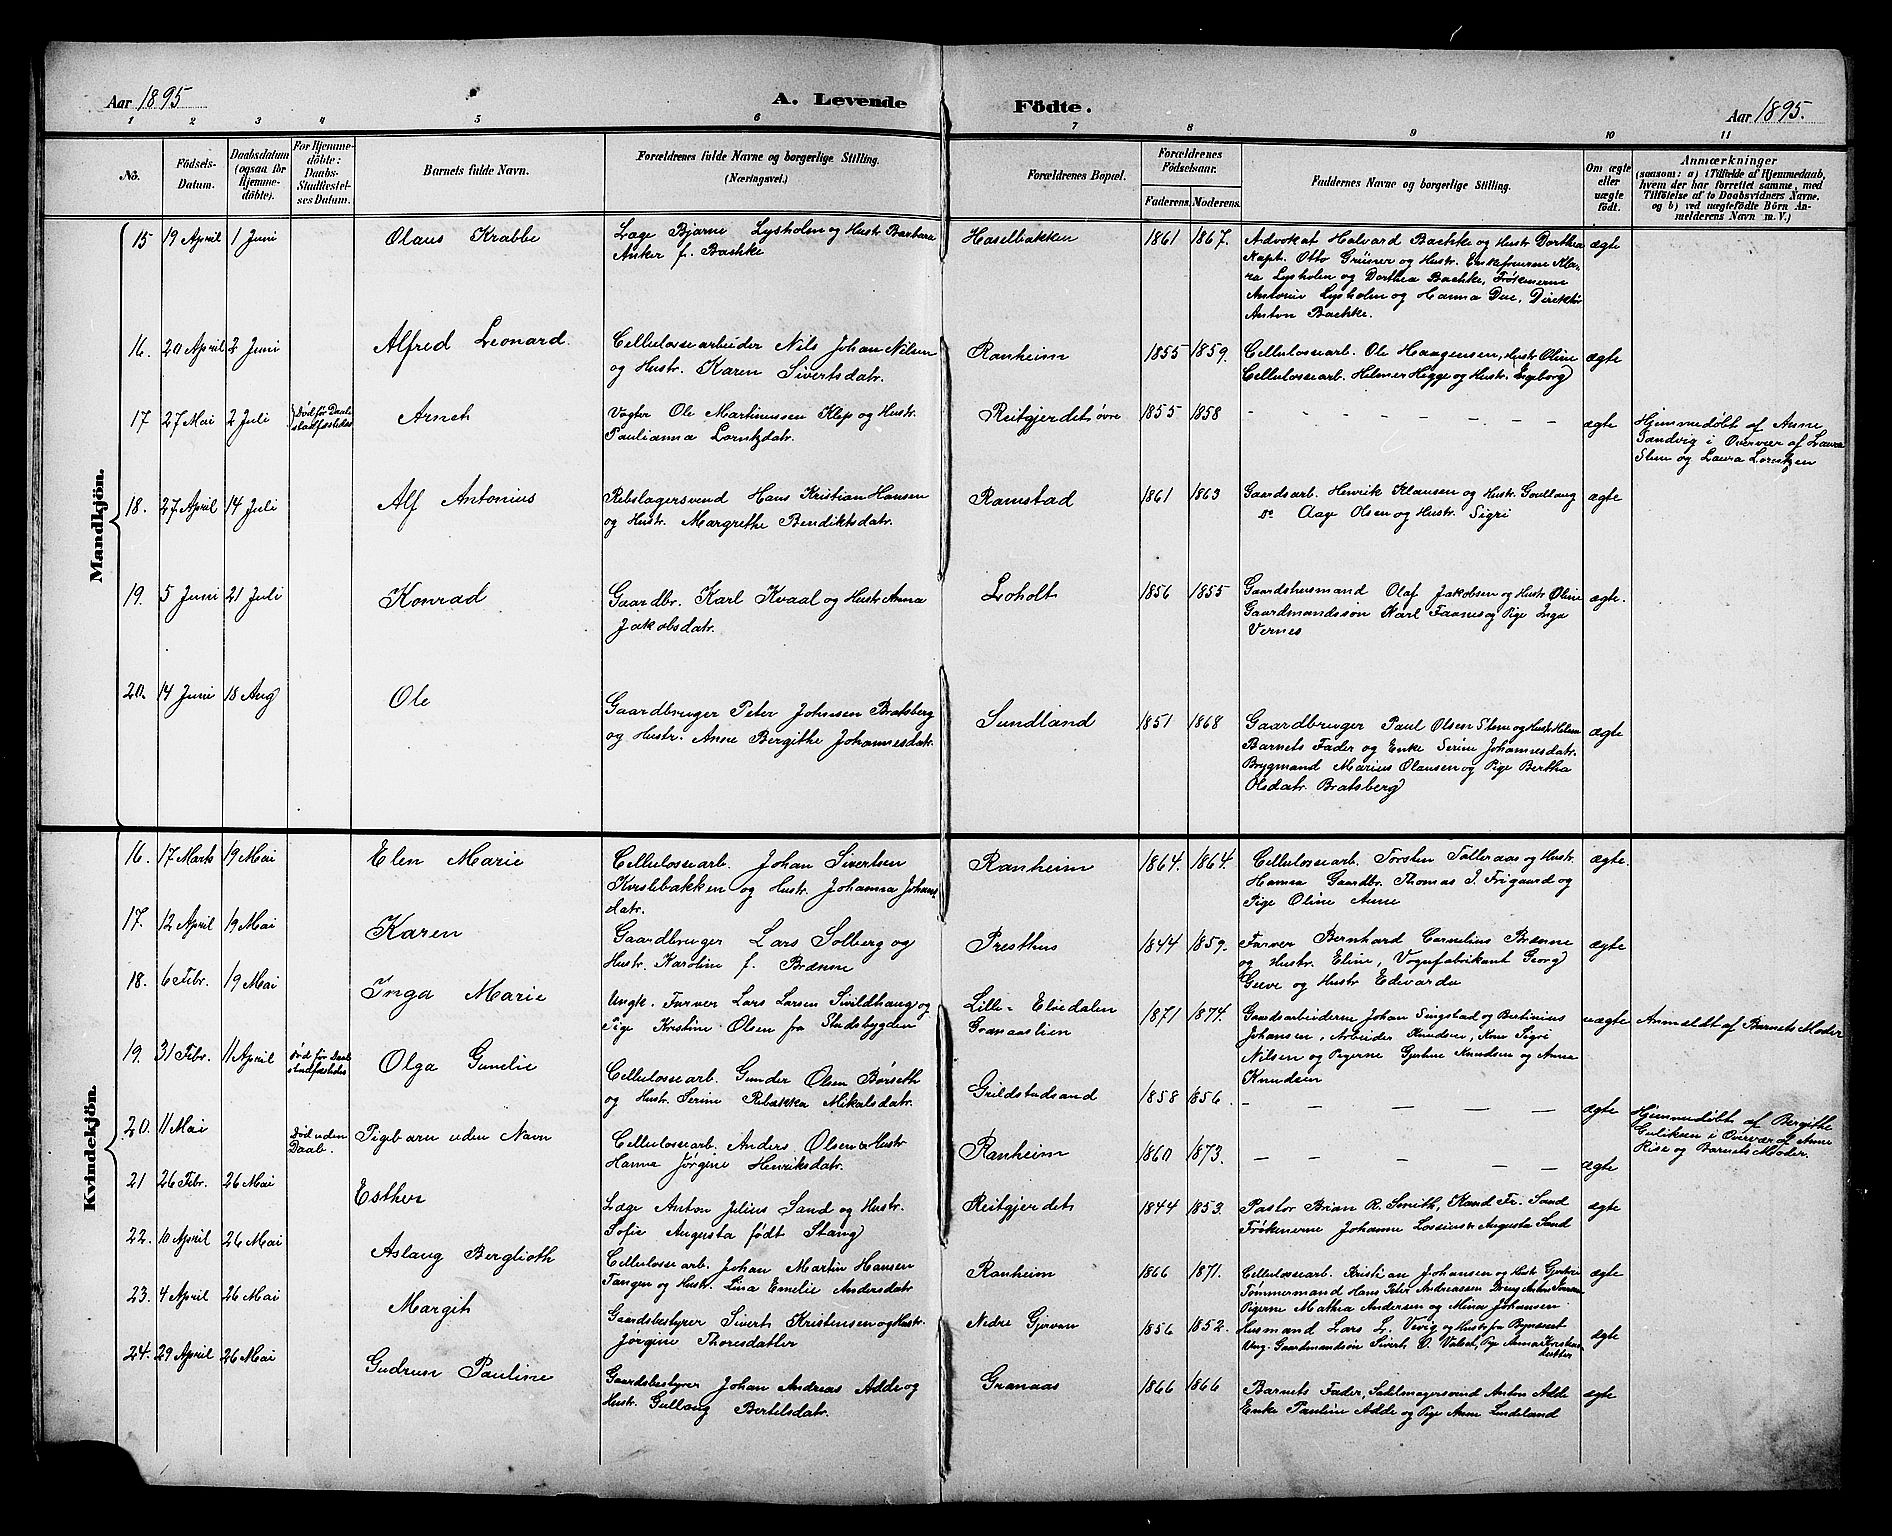 Aar 1895
A. Levende
Födte.
Aar 1895.
1 2 3 4 5 6 7 8 9 10 11
No.
Födsels-
Datum.
Daabsdatum
(ogsaa for
Hjemme-
døbte).
For Hjemme-
döbte:
Daabs-
Stadfæstel-
ses Datum.
Barnets fulde Navn.
Forældrenes fulde Navne og borgerlige Stilling.
(Næringsvei.)
Forældrenes Bopæl.
Forældrenes
Födselsaar.
Faderens. Moderens.
Faddernes Navne og borgerlige Stilling.
Om ægte
eller
uægte
födt.
Anmærkninger
(saasom: a) i Tilfælde af Hjemmedaab,
hvem der har forrettet samme, med
Tilföielse af to Daabsvidners Navne,
og b) ved uægtefödte Börn An-
melderens Navn m. V.)
Mandkjön.
15 19 April 1 Juni Olaus Krabbe
Læge Bjarne Lysholm og Hustr Barbara
Anker f. Bachke
Haselbakken 1861 1867.
Advokat Halvard Bachke og Hustr Dorthea
Kapt. Otto Grüner og Hustr. Enkefruerne Kla-
ra Lysholm og Dorthea Bachke, Frøknerne
Antonie Lysholm og Hanna Due, Direktør
Anton Bachke.
ægte
16. 20 April 2 Juni Alfred Leonard.
Cellulossearbeider Nils Johan Nilsen
og Hustr. Karen Sivertsdatr.
Ranheim 1855 1859.
Cellulossearb. Ole Haagensen, Hustr Oline
Cellulossearb. Helmer Higge og Hustr. Ingeborg
ægte
17 27 Mai 2 Juli Død før Daab
stadfæstedes Arnet
Vogter Ole Martinussen Klep og Hustr.
Paulianna Lorntzdatr.
Reitgjerdet øvre 1855 1858
– – – – – – – –
ægte
Hjemmedøbt af Anne
Sandvig i Overvær af Laura
Steen og Laura Lorntzen
18. 27 April 14 Juli Alf Antonius
Rebslagersvend Hans Kristian Hansen
og Hustr. Margrethe Bendiktsdatr.
Ramstad 1861 1863
Gaardsarb. Henrik Klausen og Hustr. Goullaug
do Aage Olsen og Hustr. Sigri
ægte
19. 5 Juni 21 Juli Konrad
Gaardbr. Karl Kvaal og Hustr Anna
Jakobsdatr.
Loholt 1856 1855
Gaardshusmand Olaf Jakobsen og Hustr Oline
Gaardmandssøn Karl Faanes og Pige Inga
Vernes
ægte.
20. 14 Juni 18 Aug Ole
Gaardbruger Peter Johnsen Bratsberg
og Hustr. Anne Bergithe Johannesdatr.
Sundland 1851 1868
Gaardbruger Paul Olsen Steen og Hustr Helen
Barnets Fader og Enke Serine Johannesdatr.
Brygmand Marius Olausen og Pige Bertha
Olsdatr. Bratsberg
ægte
Kvindekjön.
16. 17 Marts 19 Mai Elen Marie
Cellulossearb. Johan Sivertsen
Kvistebakken og Hustr. Johanna Johans
datr.
Ranheim 1864. 1864.
Cellulossearb. Torsten Tolleraas og Hustr.
Hanna Gaardbr. Thomas J. Frigaard og
Pige Oline Anne
ægte.
17. 12 April 19 Mai Karen
Gaardbruger Lars Solberg og
Hustr. Karoline f. Brænne
Presthus 1844 1859.
Farver Bernhard Cornelius Brænne
og Hustr. Eline, Vognfabrikant Georg
Greve og Hustr Edvarda
ægte
18. 6 Febr. 19 Mai Inga Marie
Ungk. Farver Lars Larsen Sivildhaug og
Pige Kristine Olsen fra Stadsbygden
Lille-Eliedalen
Granaaslien 1871 1874.
Gaardsarbeiderne Johan Singstad og Bertinius
Johansen, Arbeider Knudsen, Kone Sigri
Nilsen og Pigerne Gjertine Knudsen og Anna
Knudsen
uægte
Anmeldt af Barnets Moder
19. 31 Febr. 11 April Død før Daab
stadfæstedes Olga Gunelie
Cellulossearb. Gunder Olsen Børseth
og Hustr. Serine Rebækka Mikalsdatr.
Grilstadsand 1858 1856.
– – – – – –
ægte
Hjemmedøbt af Bergithe
i Overvær af Anne
Rise og Barnets Moder.
20. 11 Mai Død uden
Daab. Pigebarn uden Navn
Cellulossearb. Anders Olsen & Hustr
Hanna Jørgine Henriksdatr.
Ranheim 1860 1873.
– – – – – –
ægte
21 26 Febr. 26 Mai Esther
Læge Anton Julius Sand og Hustr.
Sofie Augusta født Stang
Reitgjerdet 1844 1853.
Pastor Brian R. Smith, Kand Fr. Sand
Frøknerne Johanne Lossius Augusta Sand
ægte
22. 10 April 26 Mai Aslaug Berglioth
Cellulossearb. Johan Martin Hansen
Tangen og Hustr. Lina Emelie Andersdatr
Ranheim 1866 1871.
Cellulossearb. Kristian Johansen og Hustr Gjertrü
Tømmermand Hans Peter Andreassen Dreng Anton
Pigerne Mathea Andersen og Mina Johansen
ægte
23. 4 April 26 Mai Margith
Gaardsbestyrer Sivert Kristensen og Hustr.
Jørgine Thoresdatter
Nedre Gjervan 1856 1852.
Husmand Lars L. Vevig og Hustr fra Bynæsset
Ung. Gaardmandsøn Sivert O. Valset, Pige Anna Kristens
datter
ægte
24. 29 April 26 Mai Gudrun Pauline
Gaardsbestyrer Johan Andreas Adde og
Hustr. Gullaug Bertelsdatr.
Granaas 1866 1866
Barnets Fader, Sadelmagersvend Anton Adde
Enke Pauline Adde og Pige Anne Lindeland
ægte